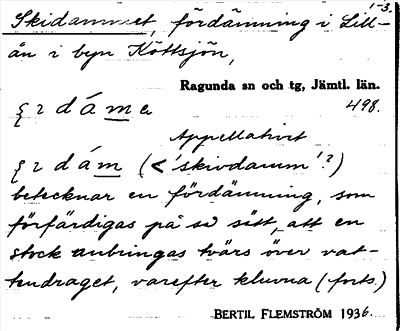 1-3.
Skidammet, fördämning i Lill-
ån i byn Köttsjön,
Ragunda sn och tg, Jämtl. län.
498.
ʃɿ dáme
Appellativet
ʃɿ dám (< 'skivdamm'?)
betecknar en fördämning, som
förfärdigas på så sätt, att en
stock anbringas tvärs över vat-
tendraget, varefter kluvna (forts.)
BERTIL FLEMSTRÖM 1936.